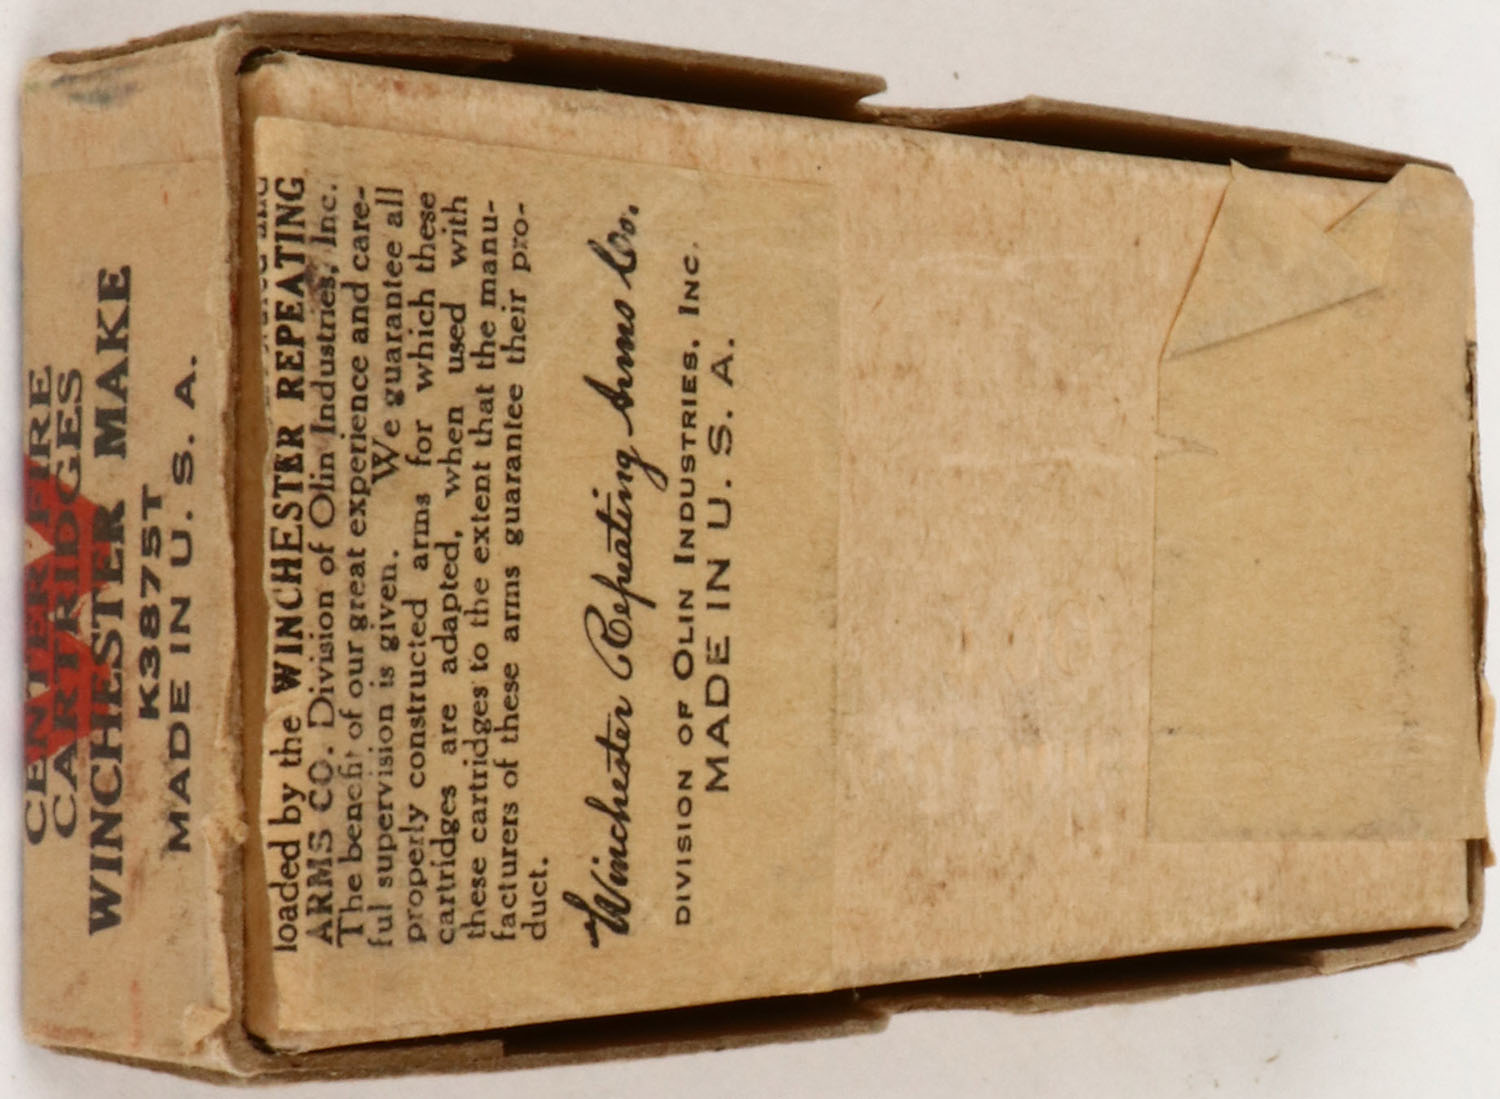 CENTER FIRE
CARTRIDGES
WINCHESTER MAKE
K3875T
MADE IN U. S. A.
loaded by the WINCHESTER REPEATING
ARMS CO. Division of Olin Industries, Inc.
The benefit of our great experience and care-
ful supervision is given. We guarantee all
properly constructed arms for which these
cartridges are adapted, when used with
these cartridges to the extent that the manu-
facturers of these arms guarantee their pro-
duct.
Winchester Repeating Arms Co.
DIVISION OF OLIN INDUSTRIES, INC.
MADE IN U. S. A.